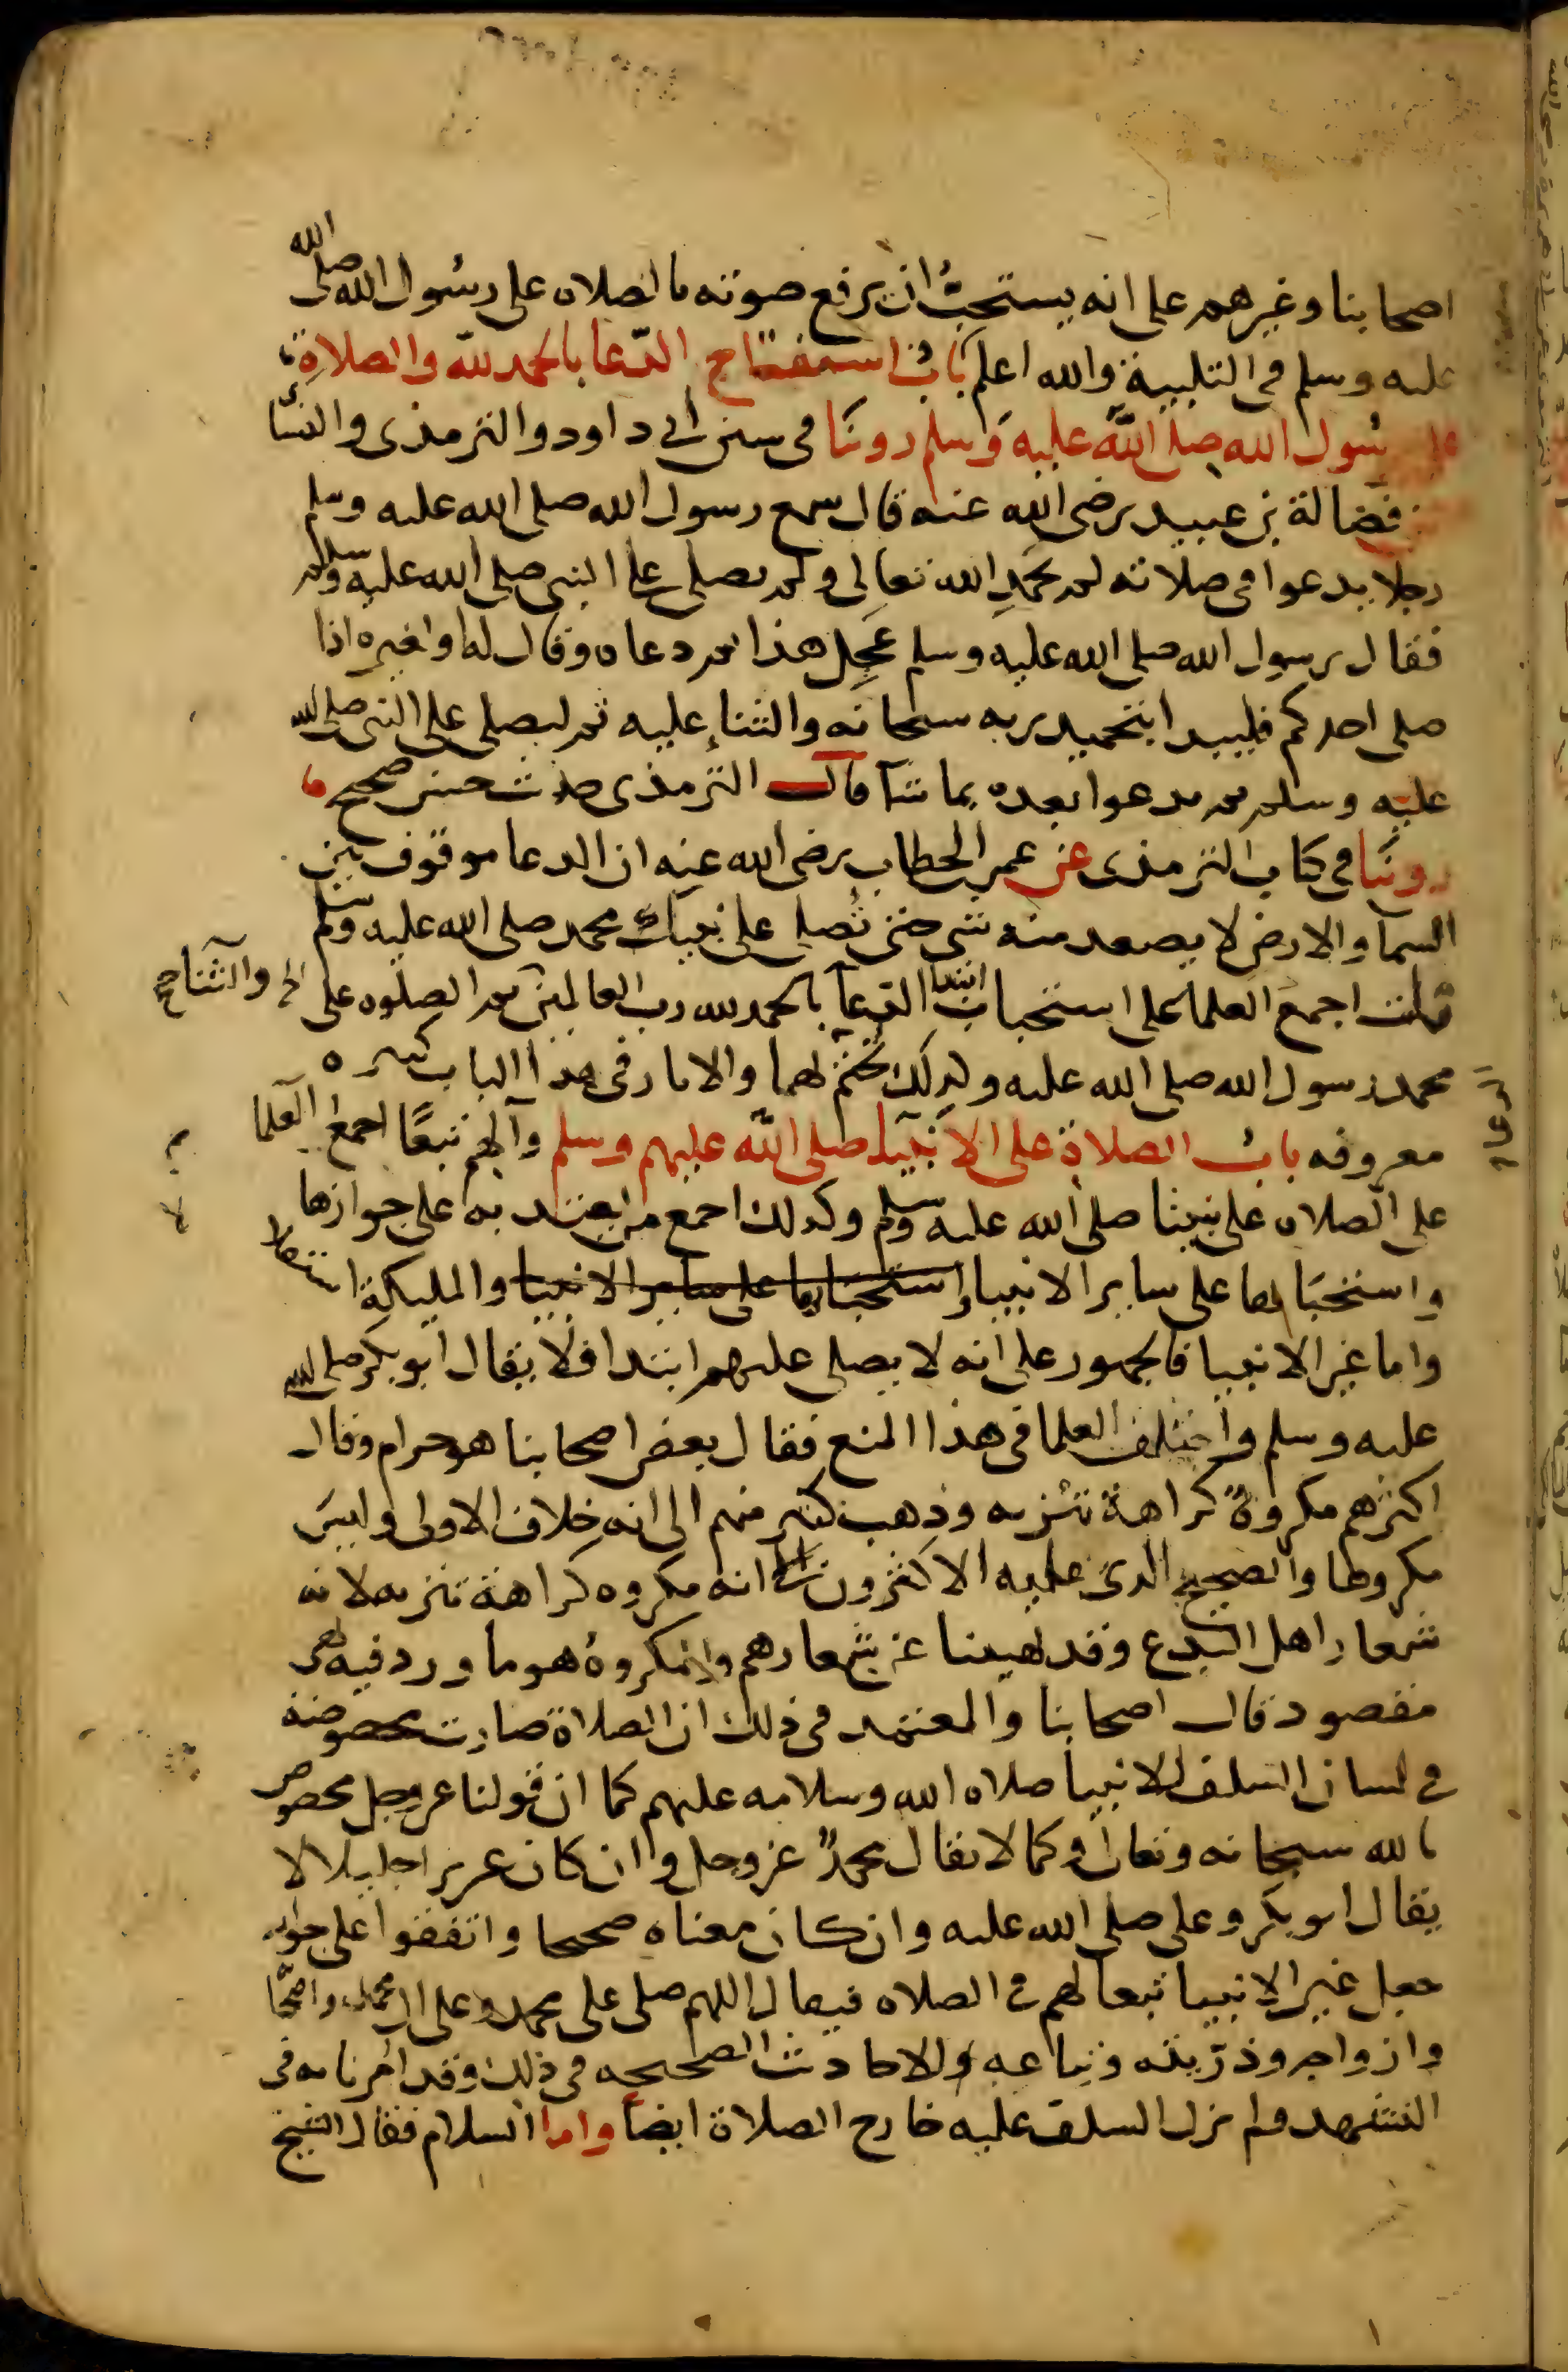 اصحابنا وغيرهم على انه يستحبُّ ان يرفع صوته بالصلاه على رسُول الله صلى الله
عليه وسلم في التلبية والله اعلم بابُ استفتاح الدّعا بالحمد لله والصلاةِ
على رسُول الله صلى الله عليه وَسلم روينَا في سنن أبي داود والترمذي والنسَّائي
عن فَضَالة بن عبيد رضي الله عنه قال سمع رسول الله صلى الله عليه وسلم
رجلا يدعوا في صلاته لم يحمَدِ الله تعالى ولم يصلي على النبي صلى الله عليه وسلم
فقال رسول الله صلى الله عليه وسلم عَجِل هذا ثم دعاه وقال له او لغيره اذا
صلى احدكم فليبدا بتحميد ربه سبحانه والثناء عليه ثم ليصلي على النبي صلى الله
عليه وسلم ثم يدعوا بعده بما شآ قال الترمذي حديث حسن صحيح
روينَا في كتاب الترمذي عن عمر بن الخطاب رضي الله عنه ان الدعا موقوف بين
السمآ والارض لا يصعد منه شي حتى تُصلي على نبيك محمد صلى الله عليه وسلم
قلت اجمع العلما على استحباب ابتدا الدّعآ بالحمد لله رب العالمين ثم الصلوه على
والثنآ صح
محمد رسول الله صلى الله عليه وكذلك تختم بهما والاثار في هذا الباب كثيره
معروفه بابُ الصلاة على الانبيآ صلى الله عليهم وسلم وآلهم تبعًا اجمع العلما
على الصلاه على نبينا صلى الله عليه وسلم وكذلك اجمع من يعتد به على جوازها
واستحبَابها على ساير الانبيا واستحبابها على ساير الانبيا والمليكة استقلالا
واما غير الانبيا فالجمهور على انه لا يصلى عليهم ابتدا فلا يقال ابو بكر صلى الله
عليه وسلم واختلف العلما في هذا المنع فقال بعض اصحابنا هو حرام وقال
اكثرهم مكروهٌ كراهة تنزيه وذهب كثير منهم الى انه خلاف الاولى وليسَ
مكروها والصحيح الذي عليه الاكثرون انه مكروه كراهة تنزيه لانه
شعار اهل البدع وقد نهينا عن شعارهم والمكروهُ هو ما ورد فيه نهي
مقصود قال اصحابنا والمعتمد في ذلك ان الصلاة صارت مخصوصة
في لسان السلف للانبيا صلاه الله وسلامه عليهم كما ان قولنا عز وجل مخصوص
بالله سبحانه وتعالى وكما لا يقال محمدٌ عز وجل وان كان عزيزا جليلا لا
يقال ابو بكر وعلي صلى الله عليه وان كان معناه صحيحا واتفقوا على جواز
جعل غير الانبيا تبعا لهم في الصلاه فيقال اللهم صلي على محمد وعلى ال محمد واصحابه
وازواجه وذرّيته وتباعه والاحاديث الصحيحه في ذلك وقد امرنا به في
التشهد ولم يزل السلف عليه خارج الصلاة ايضاً واما السلام فقال الشيخ